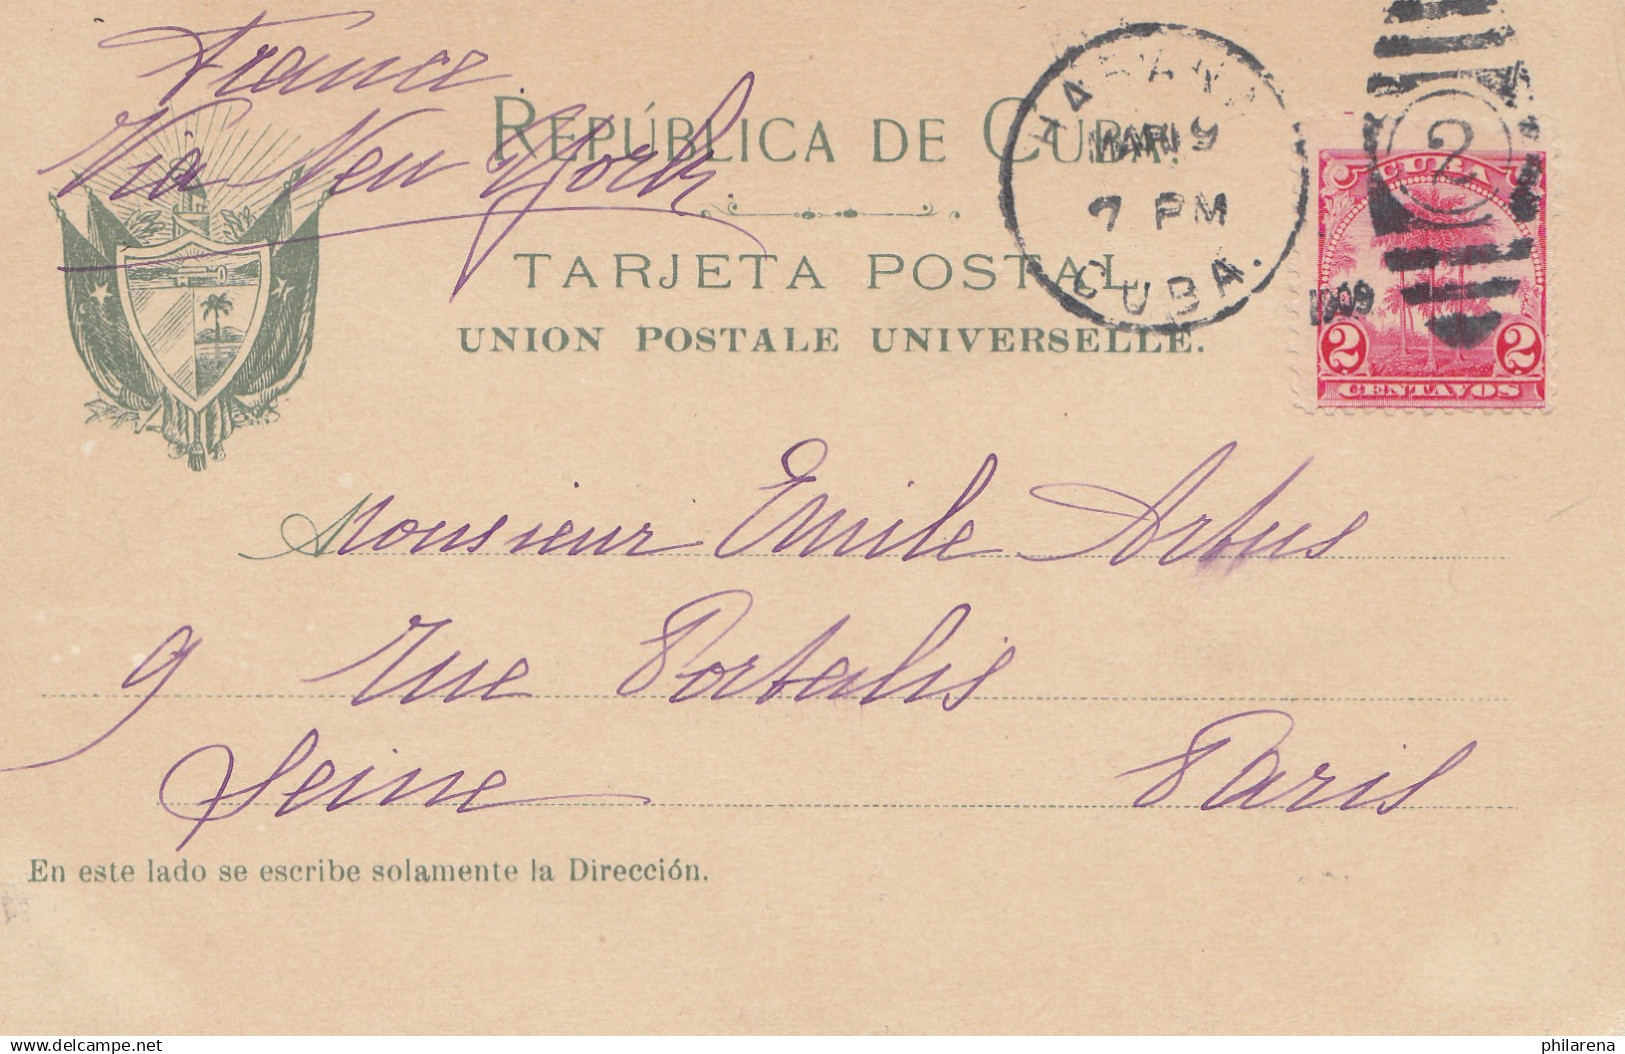 France
Via New York
REPÚBLICA DE CUBA.
TARJETA POSTAL.
UNION POSTALE UNIVERSELLE.
HABANA
MAR 19
7 PM
CUBA.
1909
2
CUBA
2 2
CENTAVOS
Monsieur Emile Artus
9 Rue Portalis
Seine Paris
En este lado se escribe solamente la Dirección.
delcampe.net
philarena